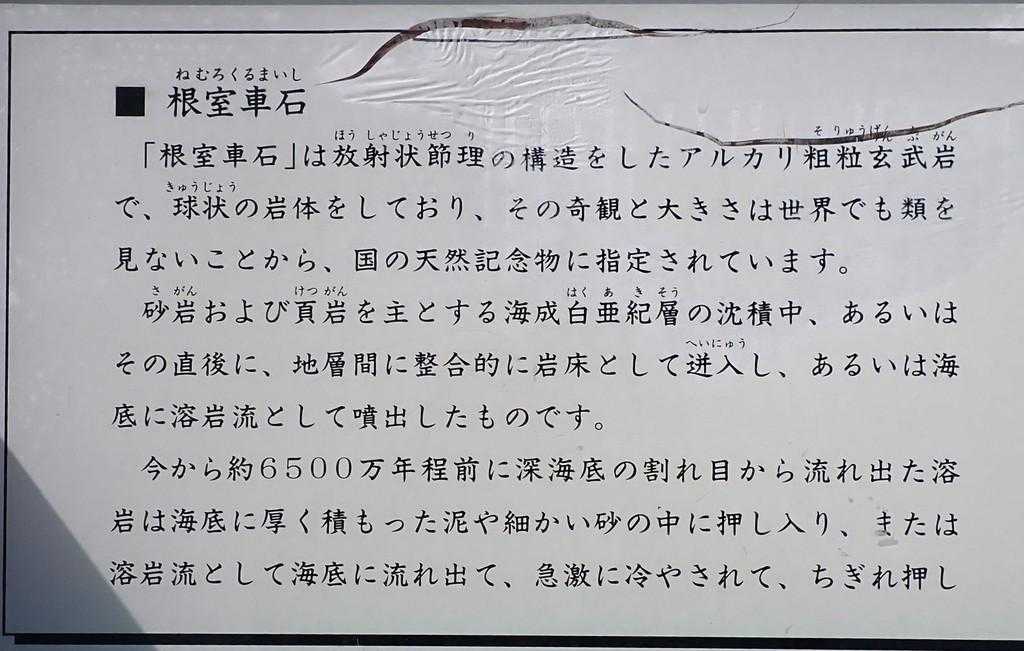 ねむろくるまいし
■ 根室車石
ほうしゃじょうせつり そりゅうげんぶがん
「根室車石」は放射状節理の構造をしたアルカリ粗粒玄武岩
きゅうじょう
で、球状の岩体をしており、その奇観と大きさは世界でも類を
見ないことから、国の天然記念物に指定されています。
さがん けつがん はくあきそう
砂岩および頁岩を主とする海成白亜紀層の沈積中、あるいは
へいにゅう
その直後に、地層間に整合的に岩床として迸入し、あるいは海
底に溶岩流として噴出したものです。
今から約6500万年程前に深海底の割れ目から流れ出た溶
岩は海底に厚く積もった泥や細かい砂の中に押し入り、または
溶岩流として海底に流れ出て、急激に冷やされて、ちぎれ押し